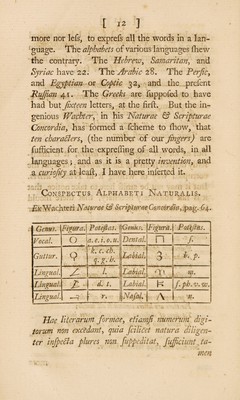 [ 12 ]
more nor leſs, to expreſs all the words in a lan-
guage. The alphabets of various languages ſhew
the contrary. The Hebrew, Samaritan, and
Syriac have 22. The Arabic 28. The Perſic,
and Egyptian or Coptic 32, and the preſent
Ruſſian 41. The Greeks are ſuppoſed to have
had but ſixteen letters, at the firſt. But the in-
genious Wachter, in his Naturæ & Scripturæ
Concordia, has formed a ſcheme to ſhow, that
ten characters, (the number of our fingers) are
ſufficient for the expreſſing of all words, in all
languages; and as it is a pretty invention, and
a curioſity at leaſt, I have here inſerted it.
CONSPECTUS ALPHABETI NATURALIS.
Ex Wachteri Naturæ & Scripturæ Concordia, pag. 64.
Genus. Figura. Poteſtas. Genus. Figura. Poteſtas.
Vocal. O a.e.i.o.u. Dental. s.
Guttur. k.c.ch.q.g.h. Labial. 3 b. p.
Lingual. L l. Labial. m.
Lingual. d. t. Labial. f.ph.v.w.
Lingual. r. Naſal. Λ n.
Hae literarum formae, etiamſi numerum digi-
torum non excedant, quia ſcilicet natura diligen-
ter inſpecta plures non ſuppeditat, ſufficiunt ta-
men